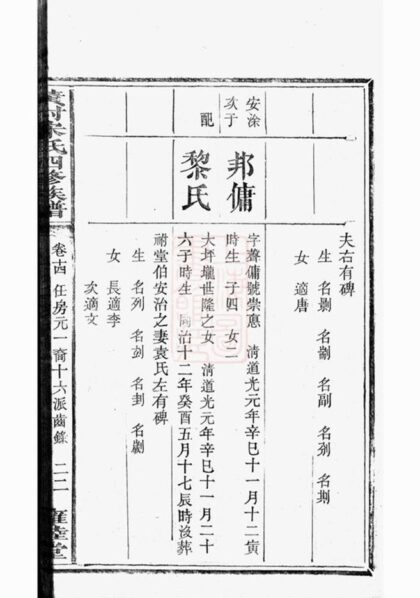 夫右有碑
生 名 名 名副 名 名
女 適唐
安涂
次子
邦傭
字聲傭號崇惠 清道光元年辛巳十一月十二寅
時生 子四 女二
配
黎氏
大坪壠世隆之女 清道光元年辛巳十一月二十
六子時生 同治十二年癸酉五月十七辰時沒葬
祠堂伯安治之妻袁氏左有碑
生 名列 名刻 名刲 名
女 長適李
次適文
氏四修族譜
卷十四 任房元一裔十六派齒錄 二二
雍睦堂